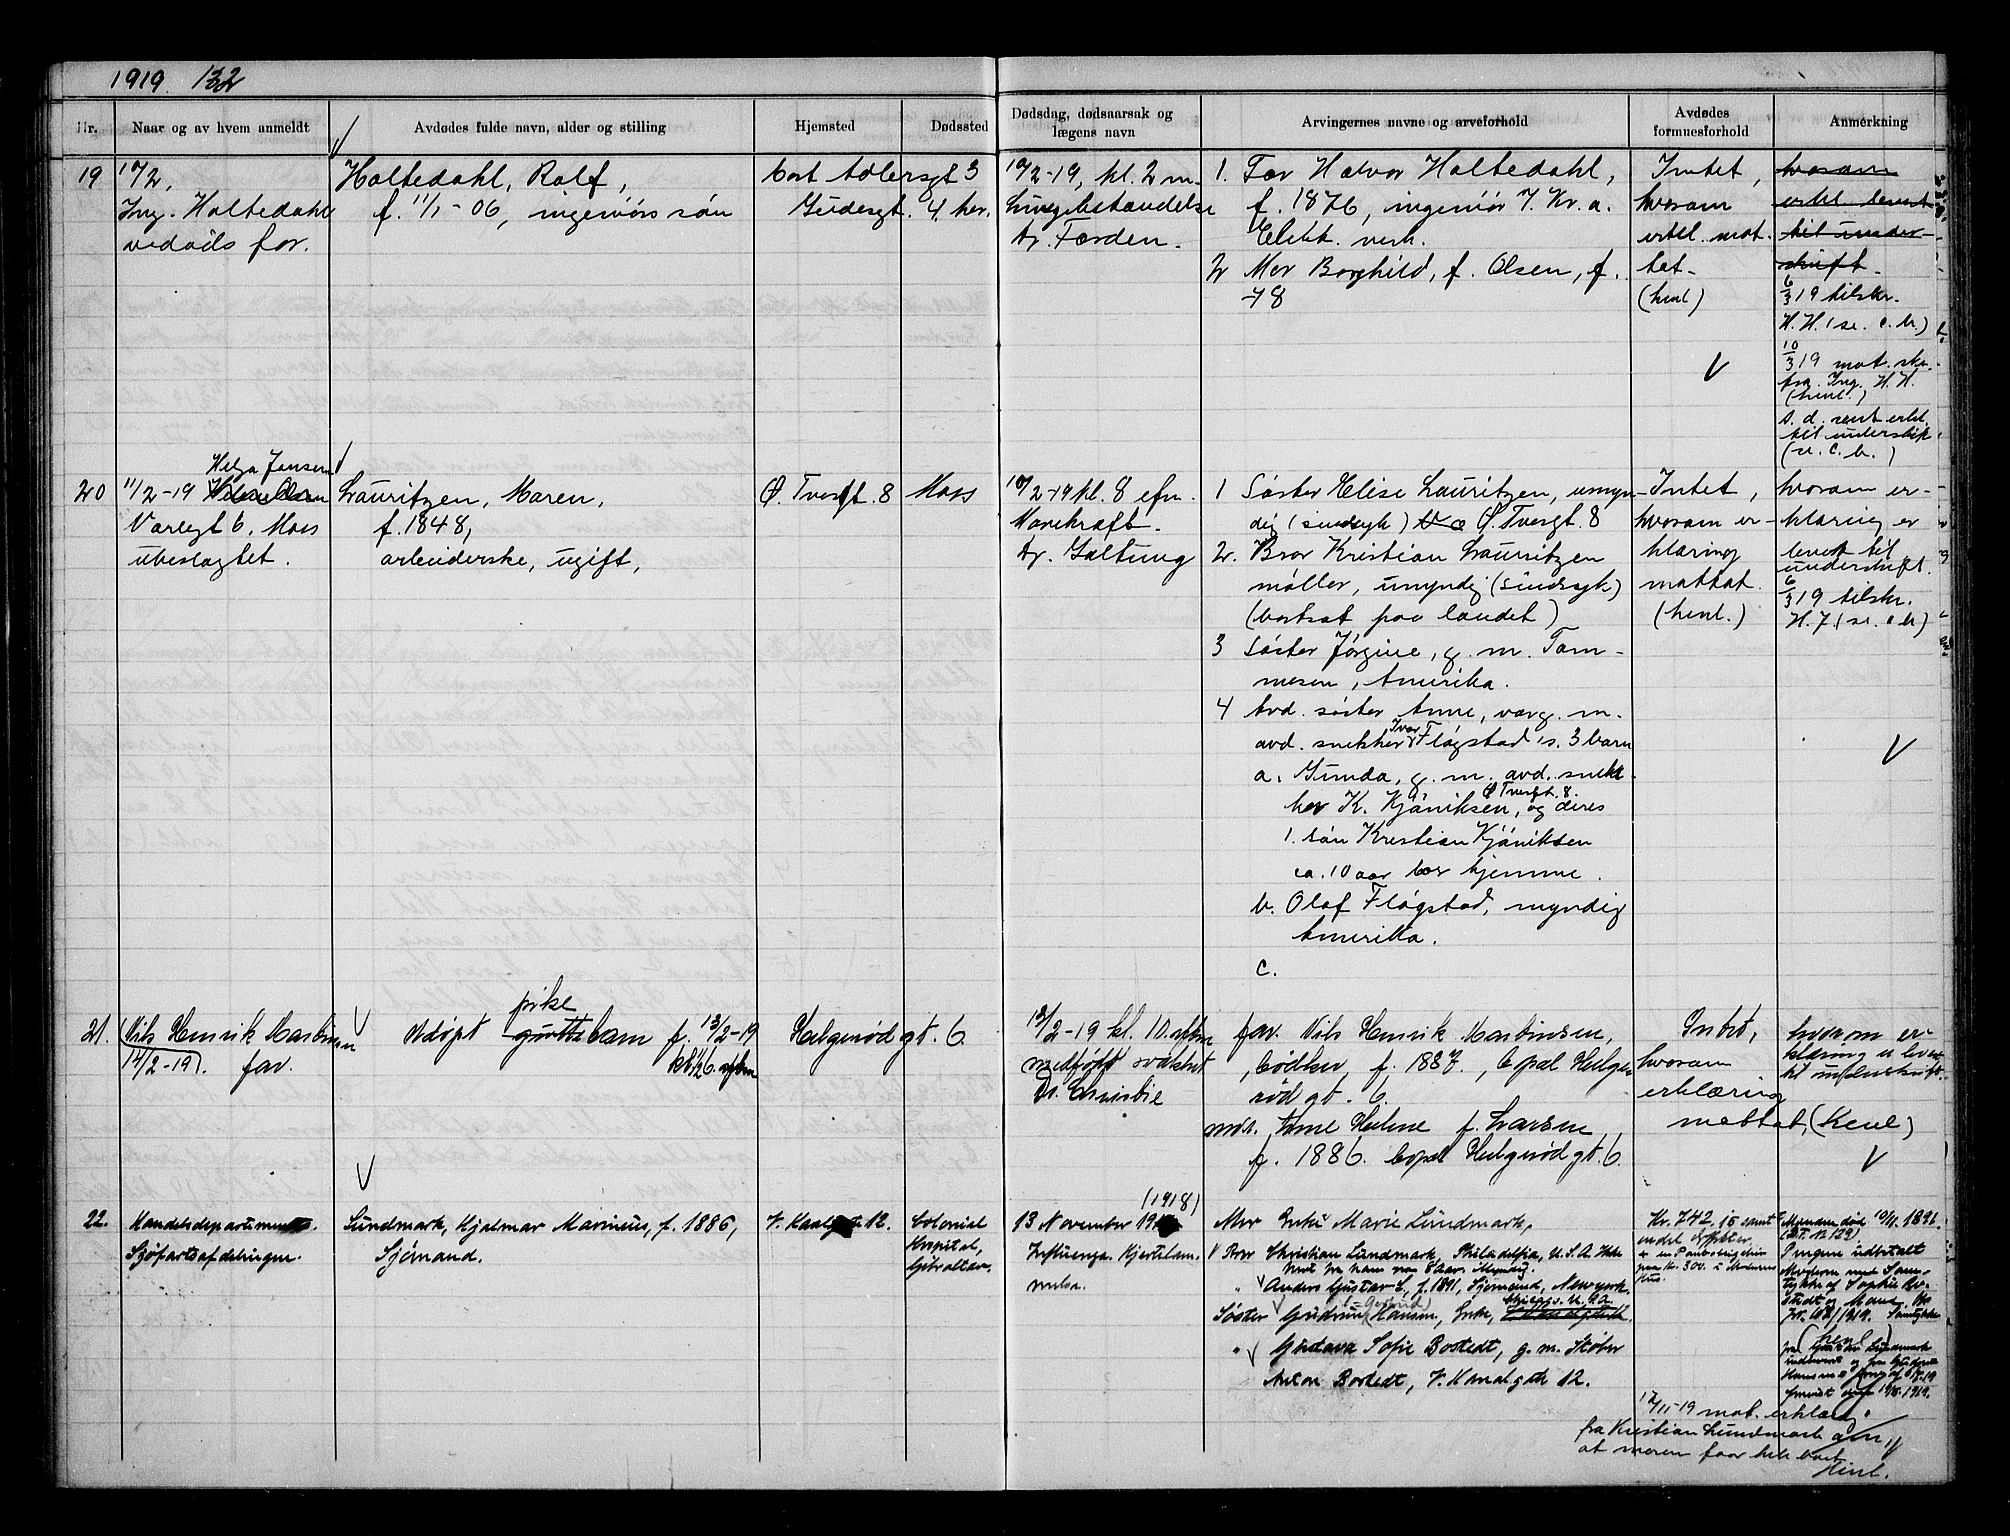 1919 132
Nr.
Naar og av hvem anmeldt
Avdødes fulde navn, alder og stilling
Hjemsted
Dødssted
Dødsdag, dødsaarsak og
lægens navn
Arvingernes navne og arveforhold
Avdødes
formuesforhold
Anmerkning
19
Ing. Holtedahl
ved avds far.
Holtedahl, Rolf,
f. 11/1-06, ingeniørs søn
Cort Adlersgt 3
Gudesgt. 4 her.
10/2-19, kl. 2 m.
Lungebetændelse
Dr. Førden.
1. Far Halvor Holtedahl,
f. 1876, ingeniør Kr. a.
Elekt. verk.
2 Mor Borghild, f. Olsen, f.
78
Intet,
hvorom
erkl. mot.
tat.
(henl)
hvorom
erkl. levert
til under-
skrift.
6/3 19 tilskr.
H. H. (se. c. b.)
10/3 19 mot. skr.
fra Ing. H. H.
(henl.)
s. d. sent erkl.
til underskr.
(se. c. b.)
20
11/2-19 Helga Jensen
Varlegt 6. Moss
ubeslægtet.
Lauritzen, Maren,
f. 1848,
arbeiderske, ugift,
Ø. Tvergt. 8
Moss
10/2-19 kl. 8 efm.
Marekraft.
Dr. Galtung
1 Søster Elise Lauritzen, umyn-
dig (sindsyk) Ø. Tvergt. 8
2. Bror Kristian Lauritzen
møller, umyndig (sindsyk)
(bortsat paa landet)
3 Søster Jørgine, g. m. Tom-
mesen, Amerika.
4 Avd. søster Anne, varg. m.
avd. snekker Ivar Fløgstad's 3 barn
a. Gunda, g. m. avd. snek-
ker K. Kjøniksen, Ø Tvergt. 8. og deres
1. søn Kristian Kjøniksen
ca. 10 aar bor hjemme.
b. Olaf Fløgstad, myndig
Amerika.
c.
Intet,
hvorom er-
klæring
mottat.
(henl.)
hvorom er-
klæring er
levert til
underskrift.
6/3 19 tilskr.
H. J. (se. c. b)
21. Nils Henrik Martinsen
(14/2-19). far.
Udøpt pikebarn f. 13/2-19
kl 1/2 6. efm
Helgerød gt. 6.
13/2-19 kl. 10. aften
medfødt svakhet
Dr. Christie
far. Nils Henrik Martinsen,
bødker, f. 1887, bopæl Helge-
rød gt. 6.
mor. Anne Helene f. Larsen
f. 1886. bopæl Helgerød gt. 6.
Intet,
hvorom
erklæring
mottat, (henl)
hvorom er-
klæring er levert
til underskrift.
22. Handelsdepartementet.
Sjøfartsafdelingen.
Sundmark, Hjalmar Marinius, f. 1886,
Sjømand.
V. Kanalgt 12.
Colonial
Hospital,
Gibraltar.
13 November (1918)
Influenza. Hjertelam-
melse.
Mor Enke Marie Lundmark,
Bror Christian Lundmark, Philadelfia, U. S. A. Ikke
hørt fra ham paa 8 aar. Myndig.
" Anders Gustav L, f. 1891, Sjømand, Newyork.
Søster Gudrun Hansen, Enke,
" Gustava Sofie Bostedt, g. m. Skøier
Anton Bostedt, V. Kanalgate 12.
Kr. 742,15 samt
endel effekter
Manden død 10/11. 1891.
Pengene indbetalt
17/11-19 mot. erklæg.
fra Kristian Lundmark om,
at moren faar hele boet
Henl.